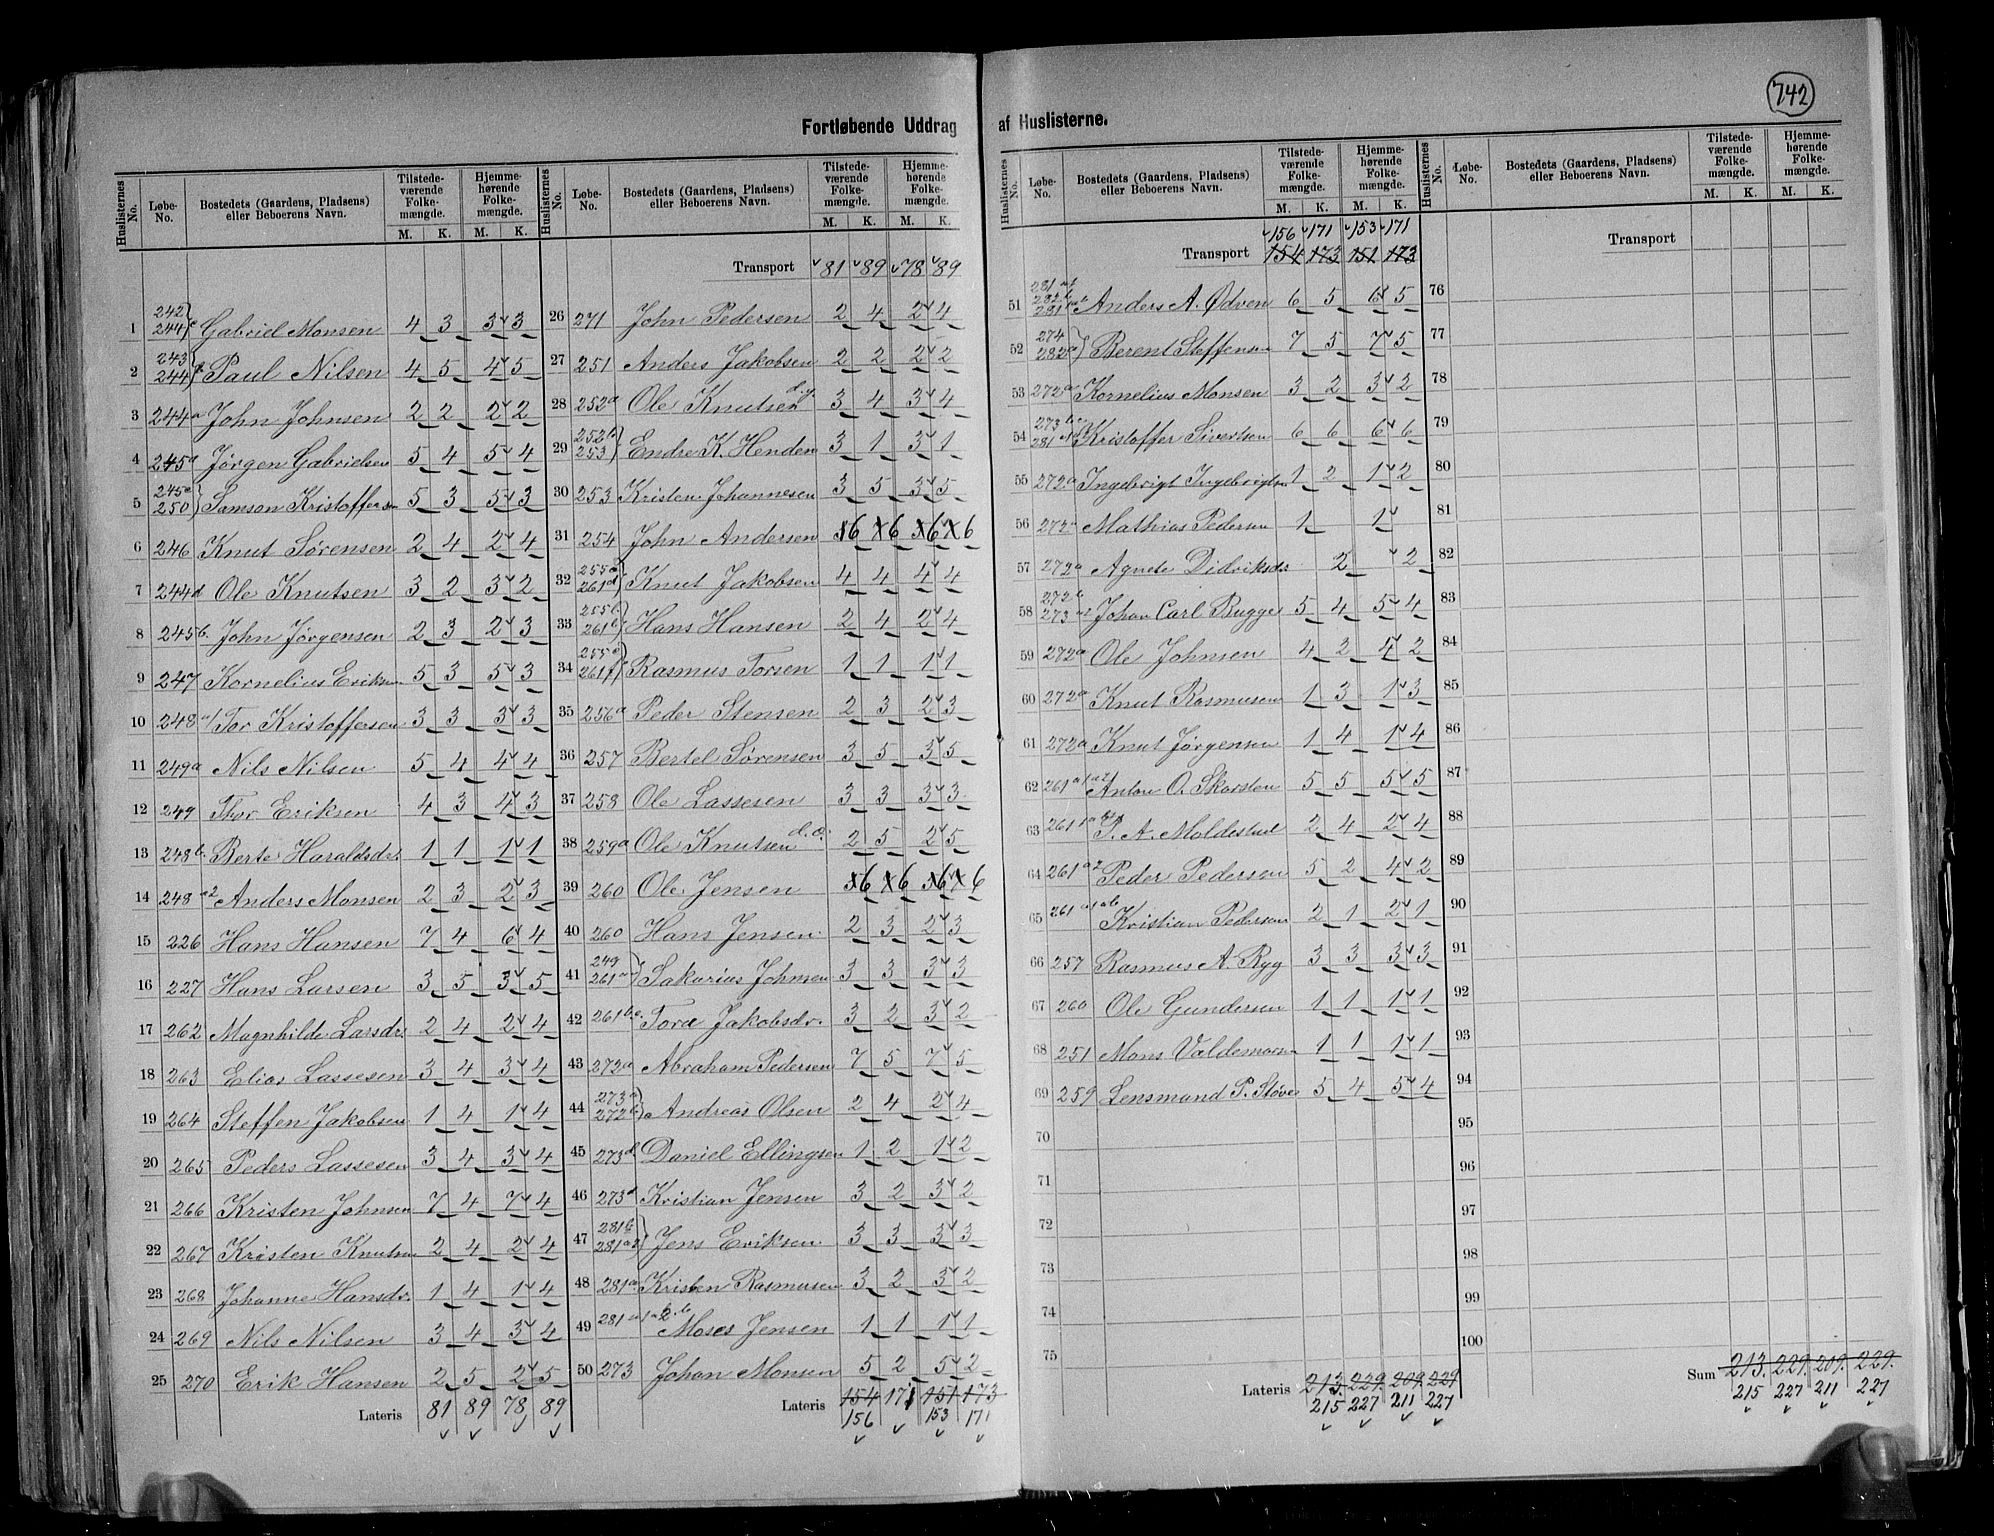 742
Fortløbende Uddrag af Huslisterne.
Huslisternes No. Løbe-No. Bostedets (Gaardens, Pladsens) eller Beboerens Navn. Tilstedeværende Folkemængde. M. K. Hjemmehørende Folkemængde. M. K.
1 242 244c Gabriel Monsen 4 3 3 3
2 243 244 Paul Nilsen 4 5 4 5
3 244a John Johnsen 2 2 2 2
4 245a Jørgen Gabrielsen 5 4 5 4
5 245a 250 Samson Kristoffersen 5 3 5 3
6 246 Knut Sørensen 2 4 2 4
7 244d Ole Knutsen 3 2 3 2
8 245b. John Jørgensen 2 3 2 3
9 247 Kornelius Eriksen 5 3 5 3
10 248a1 Tor Kristoffersen 3 3 3 3
11 249a Nils Nilsen 5 4 4 4
12 249 Thor Eriksen 4 3 4 3
13 248b. Berte Haraldsdr. 1 1 1 1
14 248a2 Anders Monsen 2 3 2 3
15 226 Hans Hansen 7 4 6 4
16 227 Hans Larsen 3 5 3 5
17 262 Magnhilde Larsdr. 2 4 2 4
18 263 Elias Lassesen 3 4 3 4
19 264 Steffen Jakobsen 1 4 1 4
20 265 Peders Lassesen 3 4 3 4
21 266 Kristen Johnsen 7 4 7 4
22 267 Kristen Knutsen 2 4 2 4
23 268 Johanne Hansdr. 1 4 1 4
24 269 Nils Nilsen 3 4 3 4
25 270 Erik Hansen 2 5 2 5
Lateris 81 89 78 89
Huslisternes No. Løbe-No. Bostedets (Gaardens, Pladsens) eller Beboerens Navn. Tilstedeværende Folkemængde. M. K. Hjemmehørende Folkemængde. M. K.
Transport 81 89 78 89
26 271 John Pedersen 2 4 2 4
27 251 Anders Jakobsen 2 2 2 2
28 252a Ole Knutsen d.y. 3 4 3 4
29 252b 253 Endre K. Henden 3 1 3 1
30 253 Kristen Johannesen 3 5 3 5
31 254 John Andersen 6 6 6 6
32 255a 261d Knut Jakobsen 4 4 4 4
33 255b 261 Hans Hansen 2 4 2 4
34 255 261f Rasmus Torsen 1 1 1 1
35 256a Peder Stensen 2 3 2 3
36 257 Bertel Sørensen 3 5 3 5
37 258 Ole Lassesen 3 3 3 3
38 259a Ole Knutsen 2 5 2 5
39 260 Ole Jensen 6 6 6 6
40 260 Hans Jensen 2 3 2 3
41 249 261 Sakarias Johnsen 3 3 3 3
42 261b.c. Tora Jakobsdr. 3 2 3 2
43 272a Abraham Pedersen 7 5 7 5
44 273a 272b Andreas Olsen 2 4 2 4
45 273d Daniel Ellingsen 1 2 1 2
46 273d Kristian Jensen 3 2 3 2
47 281b 281a2 Jens Eriksen 3 3 3 3
48 281a Kristen Rasmusen 3 2 3 2
49 281 Moses Jensen 1 1 1 1
50 273 Johan Monsen 5 2 5 2
Lateris 154 171 151 173
156 153 171
Huslisternes No. Løbe-No. Bostedets (Gaardens, Pladsens) eller Beboerens Navn. Tilstedeværende Folkemængde. M. K. Hjemmehørende Folkemængde. M. K.
156 171 153 171
Transport 154 173 151 173
51 281 282b 281 Anders A. Ødven 6 5 6 5
52 274 282a Berent Steffensen 7 5 7 5
53 272a Kornelius Monsen 3 2 3 2
54 273b 281 Kristoffer Sivertsen 6 6 6 6
55 272a Ingebrigt Ingebrigtsen 1 2 1 2
56 272a Mathias Pedersen 1 1
57 272a Agnete Didriksdr. 2 2
58 272b 273 Johan Carl Bugge 5 4 5 4
59 272a Ole Johnsen 4 2 4 2
60 272a Knut Rasmusen 1 3 1 3
61 272a Knut Jørgensen 1 4 1 4
62 261 Anton O. Skorsten 5 5 5 5
63 261 P. A. Moldestad 2 4 2 4
64 261a2 Peder Pedersen 5 2 4 2
65 261 Kristian Pedersen 2 1 2 1
66 257 Rasmus A. Ryg 3 3 3 3
67 260 Ole Gundersen 1 1 1 1
68 251 Mons Valdemarsen 1 1 1 1
69 259 Lensmand P. Støve 5 4 5 4
70
71
72
73
74
75
Lateris 213. 229. 209. 229
215 227 211 227
Huslisternes No. Løbe-No. Bostedets (Gaardens, Pladsens) eller Beboerens Navn. Tilstedeværende Folkemængde. M. K. Hjemmehørende Folkemængde. M. K.
Transport
76
77
78
79
80
81
82
83
84
85
86
87
88
89
90
91
92
93
94
95
96
97
98
99
100
Sum 213. 229. 209. 229.
215 227 211 227